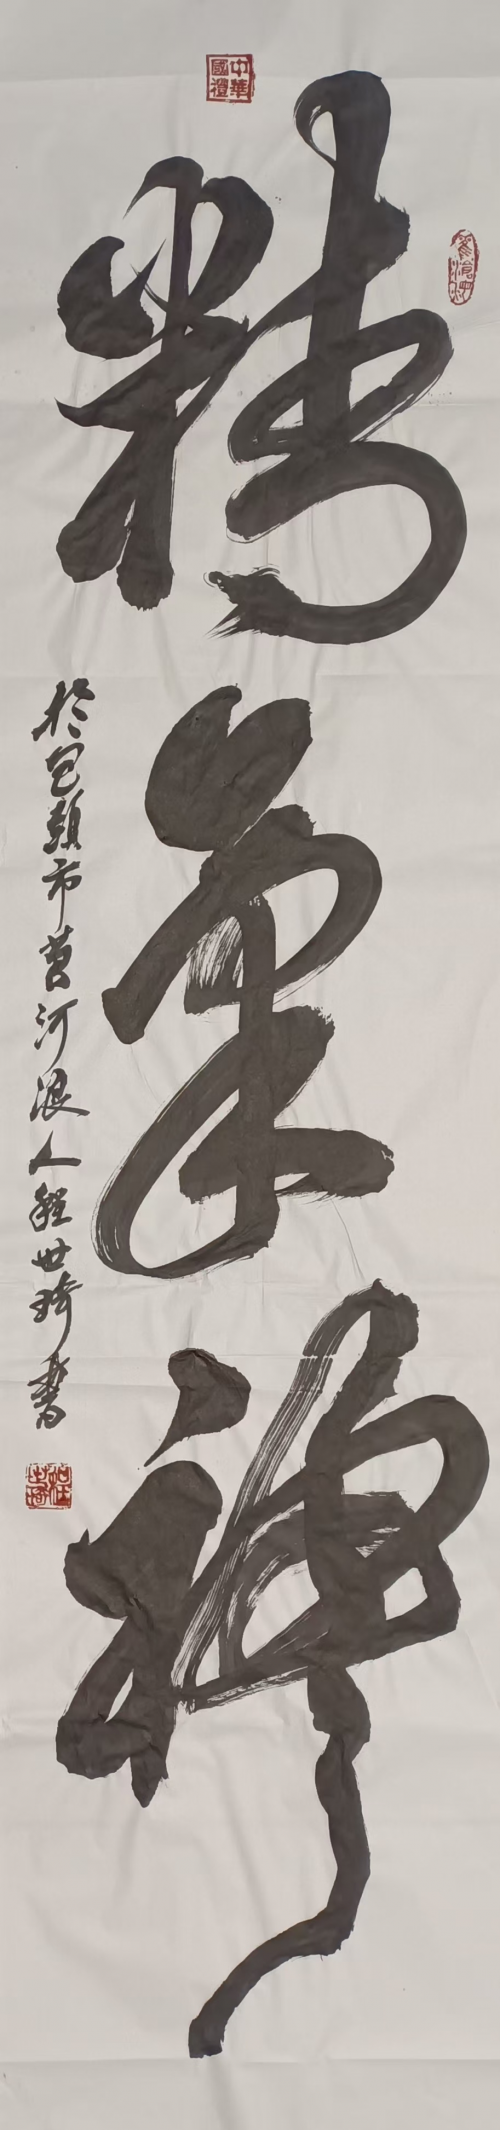 精气神
於包頭市黄河浪人程世琦書
中華
國禮